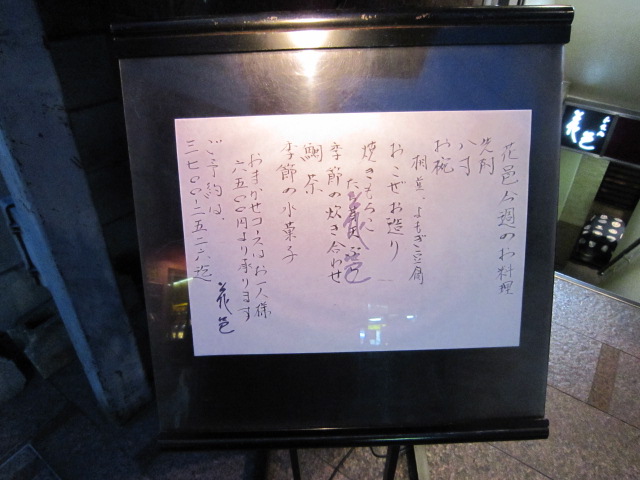 花邑今週のお料理
先附
八寸
お椀
相並、よもぎ豆腐
おこぜお造り
焼きもろこ
季節の炊き合わせ
鯛茶
季節の水菓子
おまかせコースはお一人様
六五〇〇円より承ります
ご予約は
三七〇〇-二五二六迄
花邑
花邑